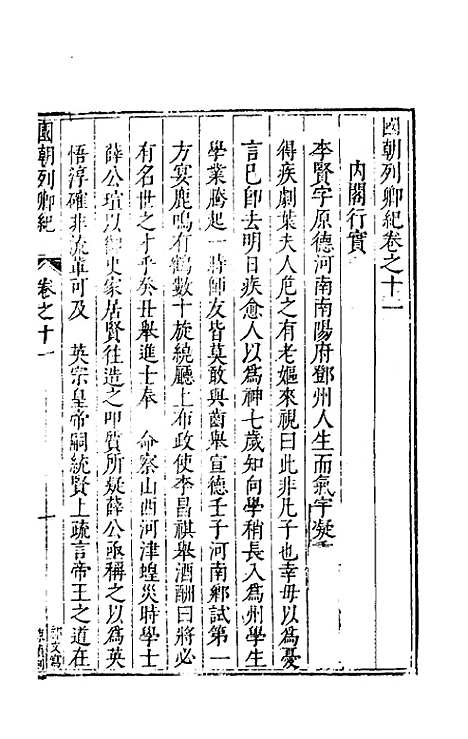 國朝列卿紀卷之十一
內閣行實
李賢字原德河南南陽府鄧州人生而氣宇凝重
得疾劇葉夫人危之有老嫗來視曰此非凡子也幸毋以爲憂
言已卽去明日疾愈人以爲神七歲知向學稍長入爲州學生
學業騰起一時師友皆莫敢與齒舉宣德壬子河南鄉試第一
方宴鹿鳴有鶴數十旋繞廳上布政使李昌祺舉酒酬曰將必
有名世之才乎癸丑舉進士奉 命察山西河津蝗災時學士
薛公瑄以御史家居賢往造之叩質所疑薛公亟稱之以爲英
悟淳確非流輩可及 英宗皇帝嗣統賢上疏言帝王之道在
國朝列卿紀
卷之十一
一